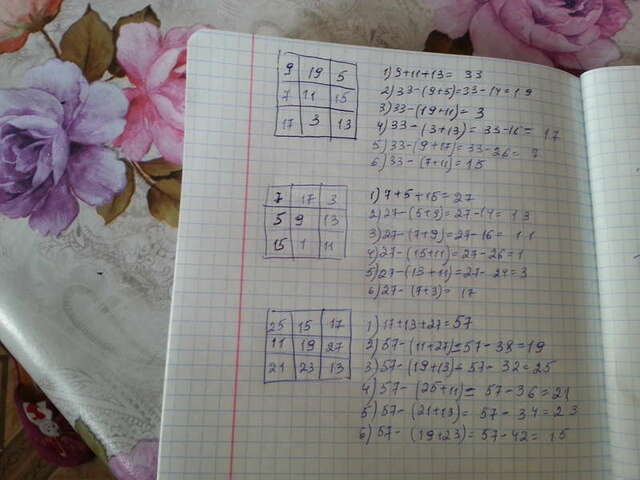 9 19 5
7 11 15
17 3 13
1) 9+11+13= 33
2) 33-(9+5)=33-14=19
3) 33-(19+11)= 3
4) 33-(3+13)= 33-16= 17
5) 33-(9+17)=33-26= 7
6) 33-(7+11)= 15
7 17 3
5 9 13
15 1 11
1) 7+5+15=27
2) 27-(5+9)=27-14= 13
3) 27-(7+9)=27-16= 11
4) 27-(15+11)=27-26=1
5) 27-(13+11)=27-24=3
6) 27-(7+3)= 17
25 15 17
11 19 27
21 23 13
1) 17+13+27=57
2) 57-(11+27)=57-38=19
3) 57-(19+13)=57-32=25
4) 57-(25+11)= 57-36=21
5) 57-(21+13)= 57-34=23
6) 57-(19+23)=57-42= 15